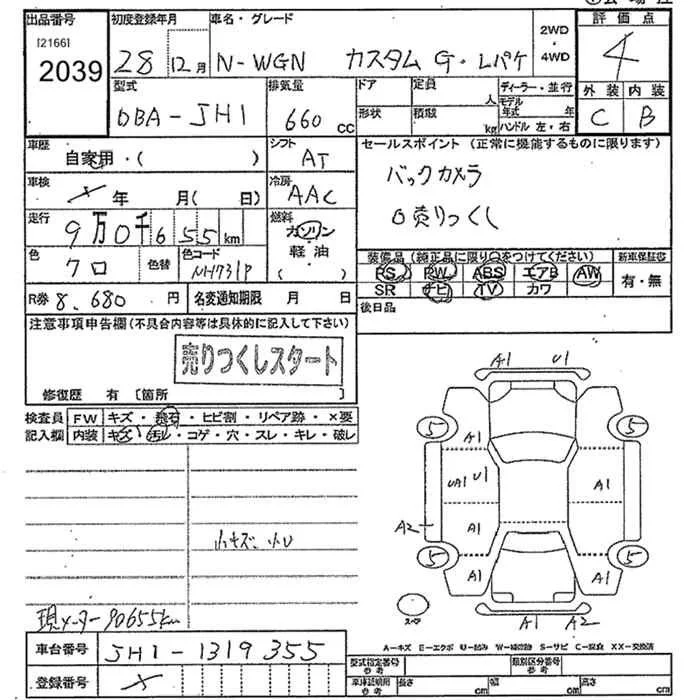 出品番号 初度登録年月 車名・グレード 評価点
[2166]
2039 28 12月 N-WGN カスタム G・Lパケ 2WD・4WD 4
型式 排気量 ドア 定員 人 ディーラー・並行 外装 内装
DBA-JH1 660 CC 形状 積数 kg モデル年式 年 ハンドル 左・右 C B
車歴 自家用・( ) シフト AT セールスポイント (正常に機能するものに限ります)
車検 年 月( 日) 冷房 AAC バックカメラ
走行 9万0千655km 燃料 ガソリン 軽油 ( ) 売りつくし
色 クロ 色替 色コード NH731P 装備品 (純正品に限り○をつけてください) 新車保証書
PS PW ABS エアB AW 有・無
R券 8,680円 名変通知期限 月 日 SR ナビ TV カワ
注意事項申告欄(不具合内容等は具体的に記入して下さい) 後日品
売りつくしスタート
修復歴 有 [箇所 ]
検査員 FW キズ・飛石・ヒビ割・リペア跡・×要
記入欄 内装 キズ・汚レ・コゲ・穴・スレ・キレ・破レ
A1 U1
5 A1 5
UA1 U1 A1
A2 A1 A1
5 A1 A1 5
A1 A2
小キズ、小U
現メーター90655km
車台番号 JH1-1319355
登録番号
A-キズ E-エクボ U-凹み S-サビ XX-交換済
型式指定番号 参考 類別区分番号 参考
車庫証明用 参考 長さ cm 幅 cm 高さ cm